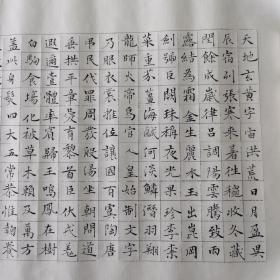 天地玄黃宇宙洪荒日月盈昃
辰宿列張寒來暑往秋收冬藏
閏餘成歲律呂調陽雲騰致雨
露結為霜金生麗水玉出崑岡
劍號巨闕珠稱夜光果珍李柰
菜重芥薑海鹹河淡鱗潛羽翔
龍師火帝鳥官人皇始制文字
乃服衣裳推位讓國有虞陶唐
弔民伐罪周發殷湯坐朝問道
垂拱平章愛育黎首臣伏戎羌
遐邇壹體率賓歸王鳴鳳在樹
白駒食場化被草木賴及萬方
蓋此身髮四大五常恭惟鞠養